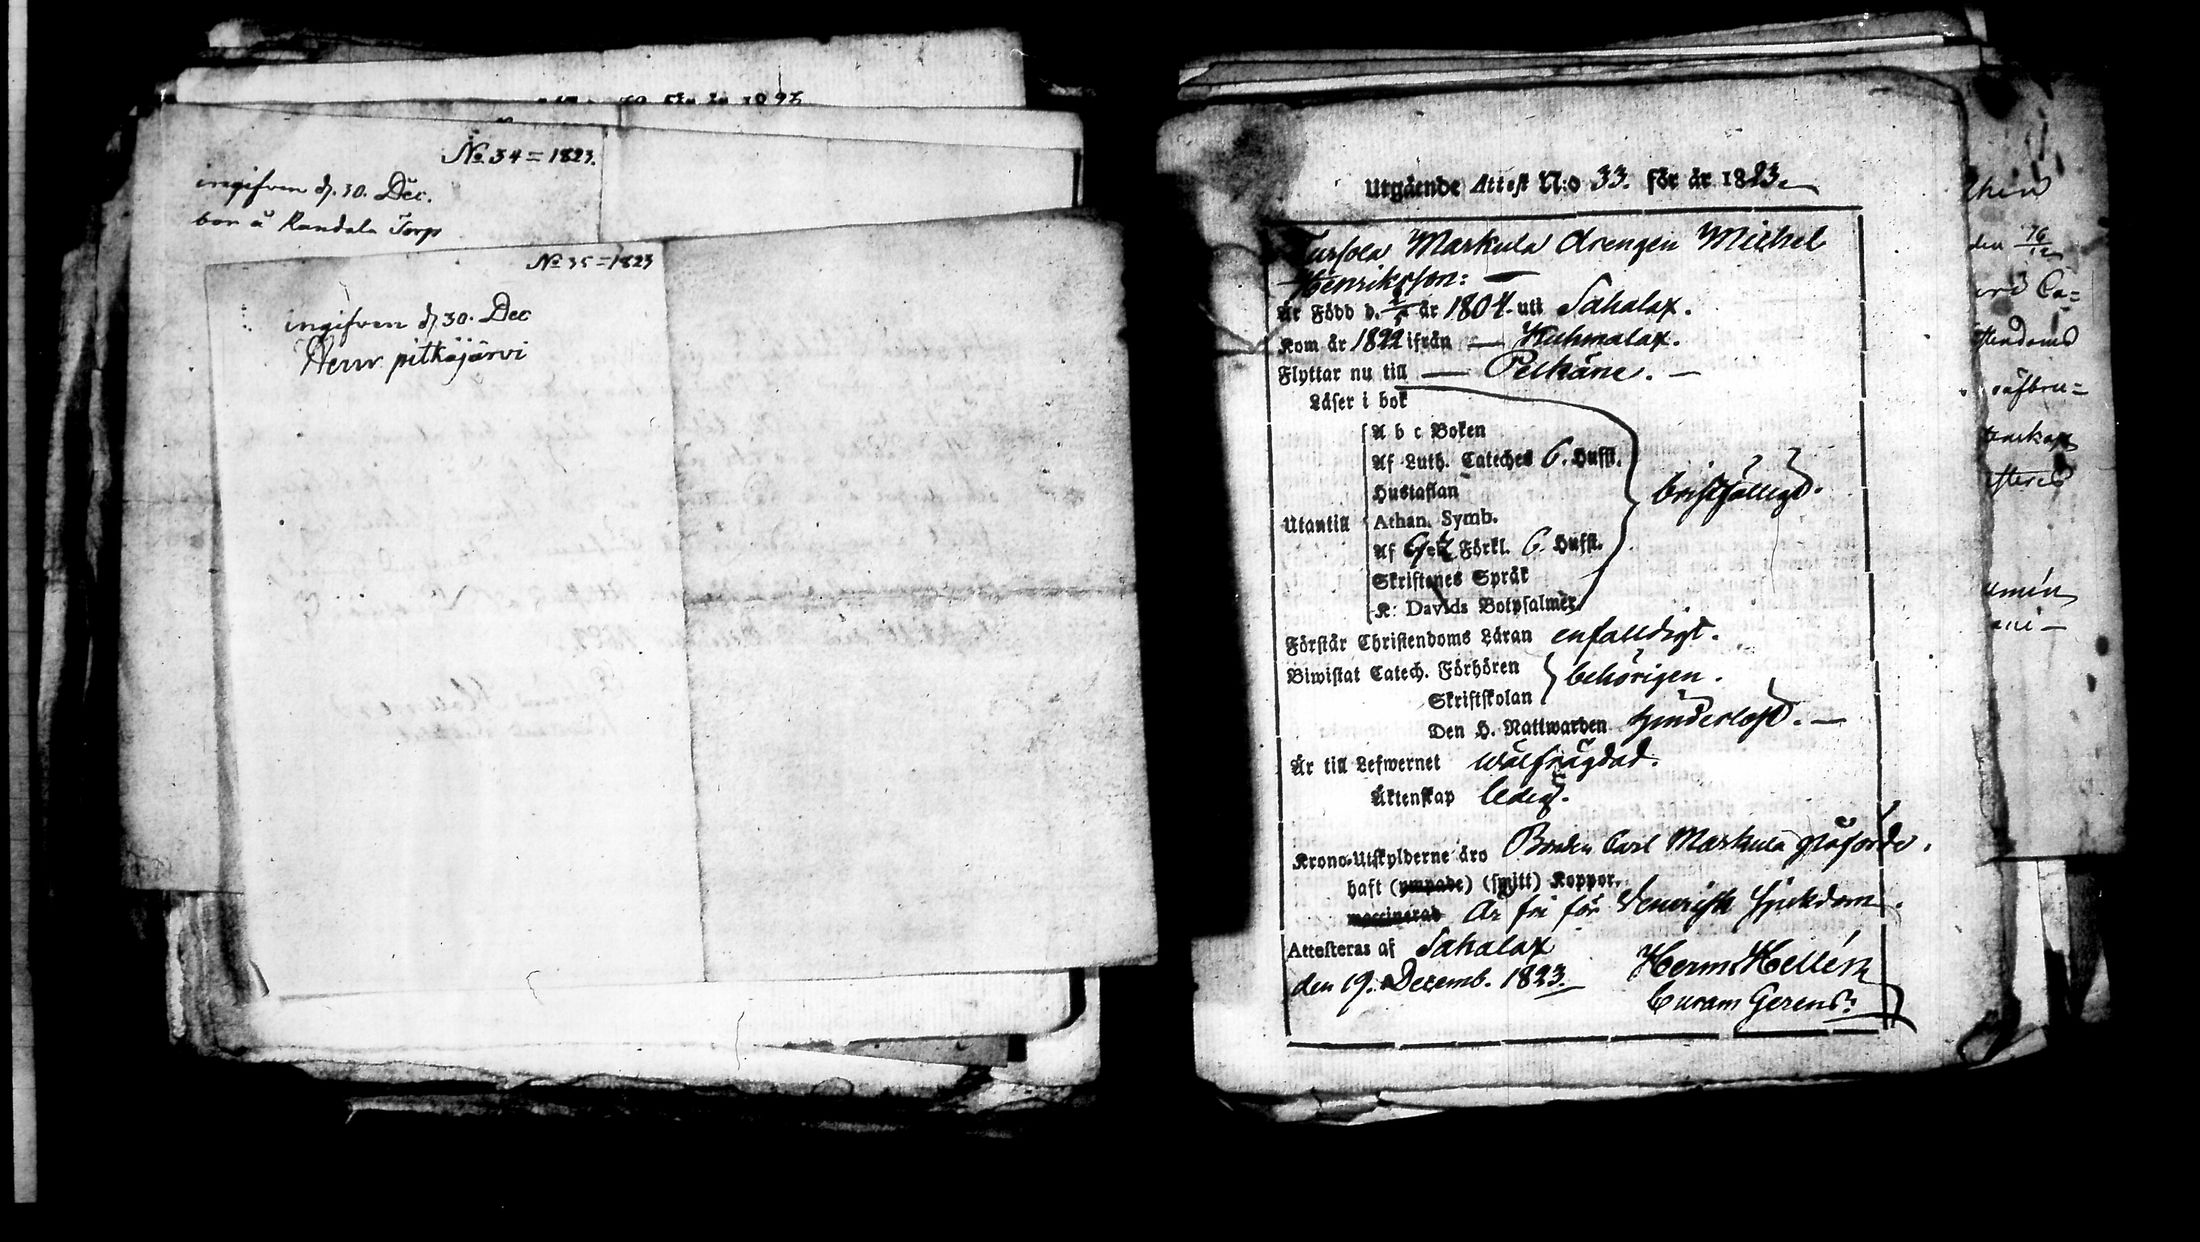 No 34 = 1823.
ingifven d. 30. Dec.
bor å Randala Torp
No 35 = 1823
ingifven d 30. Dec
Herr pitkäjärvi
Utgående Attest N:o 33. för år 1823.
Markula drengen Michel
Henriksson:
Är Född d. år 1804. uti Sahalax.
Kom år 1822 ifrån — Kuhmalax.
Flyttar nu till — Pelkäne. —
Läser i bok
A b c Boken
Af Luth. Cateches 6. Hufst.
Hustaflan
Utantill
Athan. Symb.
Af Förkl. 6. Hufst.
Skriftenes Språk
K. Davids Botpsalmer
bristfälligt.
Förstår Christendoms Läran enfalldigt.
Biwistat Catech. Förhören
Skriftskolan
behörigen.
Den H. Nattwarden hinderlöst. —
Är till Lefwernet wälfrägdad.
Äktenskap ledig.
Krono-Utskylderne äro Bonden Carl Markula påförde.
haft (ympade) (smitt) Koppor.
vaccinerad Är fri för Venerisk sjukdom.
Attesteras af Sahalax
den 19. Decemb. 1823.
Herm. Hellén
Curam Gerens.
den 16/12